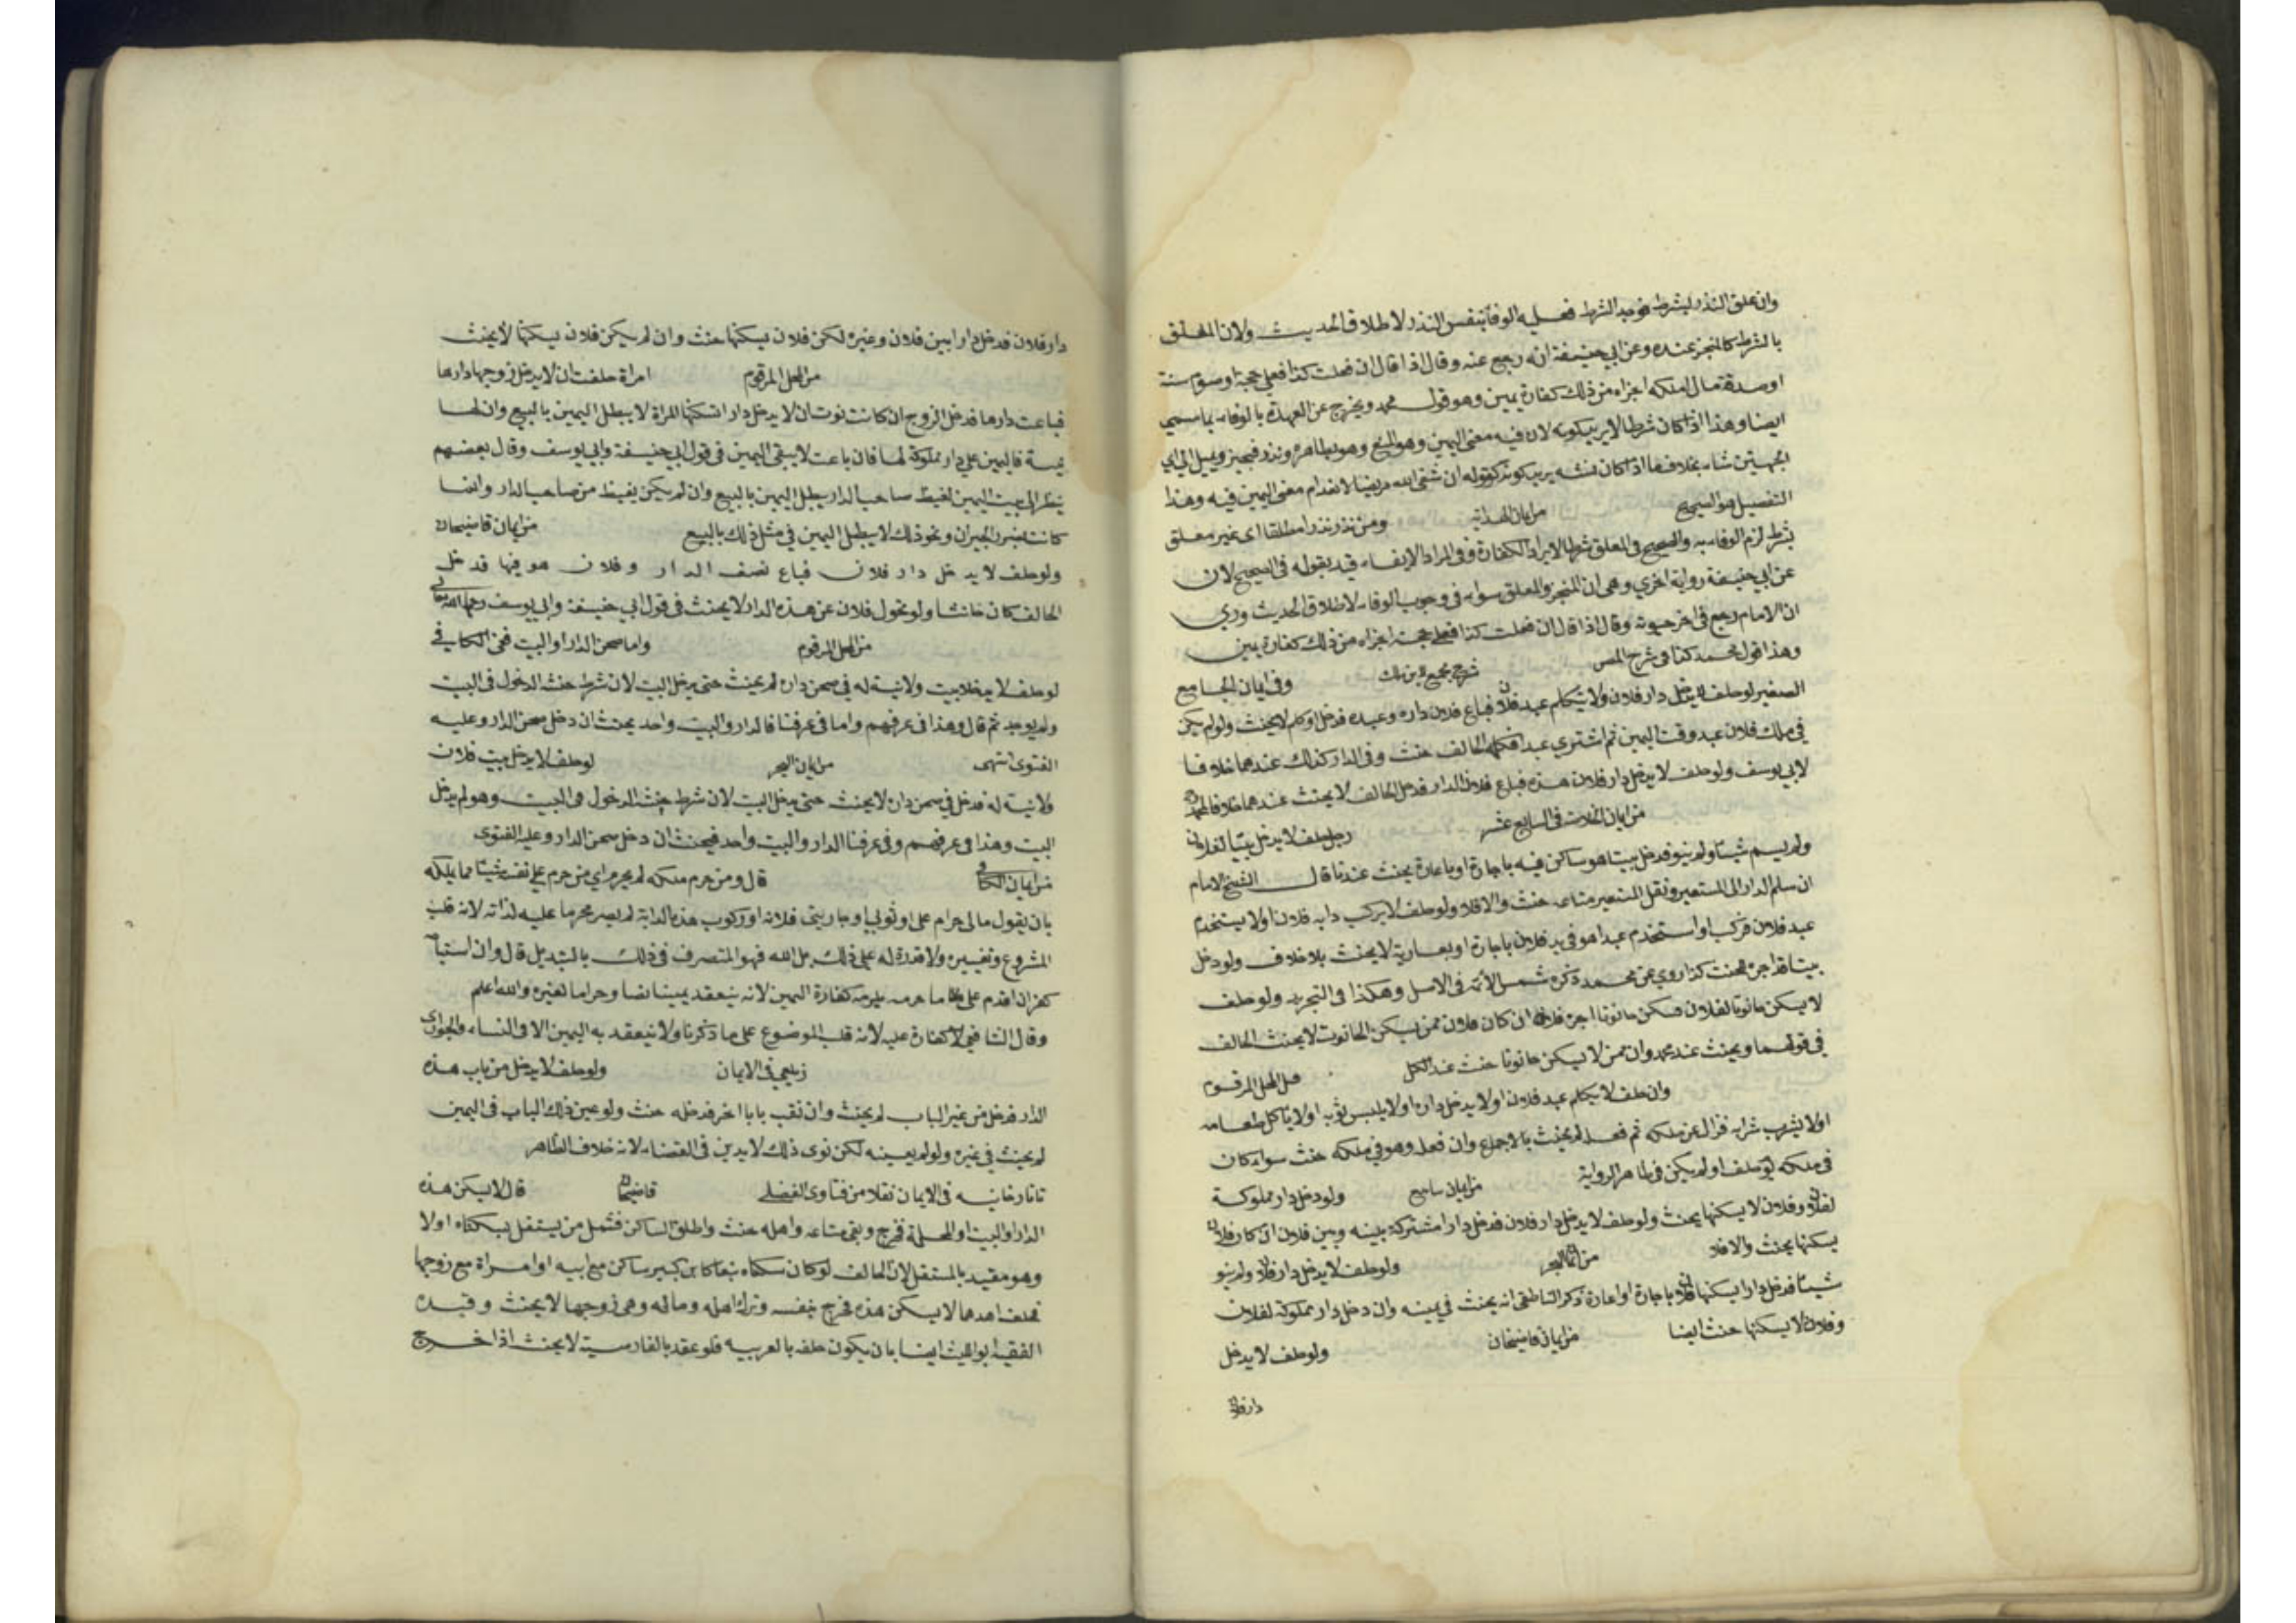 وان علق النذر بشرط فوجد الشرط فعليه الوفا بنفس النذر لاطلاق الحديث ولان المعلق
بالشرط كالمنجز عنده وعن ابي حنيفة انه رجع عنه وقال اذا قال ان فعلت كذا فعلي حجة او صوم سنة
او صدقة مال املكه اجزاه من ذلك كفارة يمين وهو قول محمد ويخرج عن العهدة بالوفاء بما سمي
ايضا وهذا اذا كان شرطا لا يريد كونه لان فيه معنى اليمين وهو المنع وهو بظاهره نذر فيخير ويميل الى اي
الجهتين شاء بخلاف ما اذا كان شرطا يريد كونه كقوله ان شفى الله مريضا لانعدام معنى اليمين فيه وهذا
التفصيل هو الصحيح من ايمان الهداية ومن نذر نذرا مطلقا اي غير معلق
بشرط لزم الوفاء به والصحيح في المعلق شرطا لا يراد الكفارة وفي المراد الايفاء قيد بقوله في الصحيح لان
عن ابي حنيفة رواية اخري وهي ان المنجز والمعلق سواء في وجوب الوفاء لاطلاق الحديث وروي
ان الامام رجع في اخر حيوته وقال اذا قال ان فعلت كذا فعلي حجة اجزاه من ذلك كفارة يمين
وهذا قول محمد كذا في شرح المص شرح مجمع لابن ملك وفي ايمان الجامع
الصغير لو حلف لا يدخل دار فلان ولا يتكلم عبد فلان فباع فلان داره وعبده فدخل او كلم لا يحنث ولو لم يكن
في ملك فلان عبد وقت اليمين ثم اشتري عبدا فكلمه الحالف حنث وفي الدار كذلك عندهما خلافا
لابي يوسف ولو حلف لا يدخل دار فلان هذه فباع فلان الدار فدخل الحالف لا يحنث عندهما خلافا لمحمد
من ايمان الخلاصة في السابع عشر رجل حلف لا يدخل بيتا لفلان
ولم يسم شيئا ولم ينو فدخل بيتا هو ساكن فيه باجارة او باعارة يحنث عندنا قال الشيخ الامام
ان سلم الدار الى المستعير ونقل المستعير متاعه حنث والا فلا ولو حلف لا يركب دابه فلان او لا يستخدم
عبد فلان فركب او استخدم عبدا هو في يد فلان باجارة او بعارية لا يحنث بلا خلاف ولو دخل
بيتا قد اجره يحنث كذا روي عن محمد ذكره شمس الائمة في الاصل وهكذا في التجريد ولو حلف
لا يسكن حانوتا لفلان فسكن حانوتا اجره فلان ان كان فلان ممن يسكن الحانوت لا يحنث الحالف
في قولهما ويحنث عند محمد وان ممن لا يسكن حانوتا حنث عند الكل من المحل المرقوم
وان حلف لا يكلم عبد فلان او لا يدخل داره او لا يلبس ثوبه او لا ياكل طعامه
او لا يشرب شرابه فزال عن ملكه ثم فعل لم يحنث بالاجماع وان فعل وهو في ملكه حنث سواء كان
في ملكه يوم حلف او لم يكن في ظاهر الرواية من ايمان سامع ولو دخل دار مملوكة
لفلان وفلان لا يسكنها يحنث ولو حلف لا يدخل دار فلان فدخل دارا مشتركة بينه وبين فلان ان كان فلان
يسكنها يحنث والا فلا من ايمان البحر ولو حلف لا يدخل دار فلان ولم ينو
شيئا فدخل دارا يسكنها فلان باجارة او اعارة ذكر الناطفي انه يحنث في يمينه وان دخل دار مملوكة لفلان
وفلان لا يسكنها حنث ايضا من ايمان قاضيخان ولو حلف لا يدخل
دار فلان
دار فلان فدخل دارا بين فلان وغيره لكن فلان يسكنها حنث وان لم يكن فلان يسكنها لا يحنث
من المحل المرقوم امراة حلفت ان لا يدخل زوجها دارها
فباعت دارها فدخل الزوج ان كانت نوت ان لا يدخل دارا تسكنها المراة لا يبطل اليمين بالبيع وان لها
نية فاليمين على دار مملوكة لها فان باعت لا يبقى اليمين في قول ابي حنيفة وابي يوسف وقال بعضهم
ينظر الى اليمين لغيظ صاحب الدار يبطل اليمين بالبيع وان لم يكن لغيظ من صاحب الدار وانما
كانت لضرر الجيران ونحو ذلك لا يبطل اليمين في مثل ذلك بالبيع من ايمان قاضيخان
ولو حلف لا يدخل دار فلان فباع نصف الدار وفلان هو فيها فدخل
الحالف كان حانثا ولو تحول فلان عن هذه الدار لا يحنث في قول ابي حنيفة وابي يوسف رحمهما الله تعالى
من المحل المرقوم واما صحن الدار او البيت ففي الكافي
لو حلف لا يدخل بيت ولا نية له في صحن داره لم يحنث حتى يدخل البيت لان شرط حنث الدخول في البيت
ولم يوجد ثم قال وهذا في عرفهم واما في عرفنا فالدار والبيت واحد يحنث ان دخل صحن الدار وعليه
الفتوى انتهى من ايمان البحر لو حلف لا يدخل بيت فلان
ولا نية له فدخل في صحن داره لا يحنث حتى يدخل البيت لان شرط حنث الدخول في البيت وهو لم يدخل
البيت وهذا في عرفهم وفي عرفنا الدار والبيت واحد فيحنث ان دخل صحن الدار وعليه الفتوى
من ايمان الكافي قال ومن حرم ملكه لم يحرم اي من حرم على نفسه شيئا مما يملكه
بان يقول مالي حرام علي او ثوبي او جاريتي فلانه او ركوب هذه الدابة لم يصر محرما عليه لذاته لانه قلب
المشروع وتغييره ولا قدرة له على ذلك بل الله فهو المتصرف في ذلك بالتبديل قال وان استباحه
كفر ان اقدم على ما حرمه يلزمه كفارة اليمين لانه ينعقد يمينا نصا وحراما لغيره والله اعلم
وقال الشافعي لا كفارة عليه لانه قلب الموضوع على ما ذكرنا ولا ينعقد به اليمين الا في النساء والجواري
زيلعي في الايمان ولو حلف لا يدخل من باب هذه
الدار فدخل من غير الباب لم يحنث وان نقب بابا اخر فدخله حنث ولو عين ذلك الباب في اليمين
لم يحنث في غيره ولو لم يعينه لكن نوى ذلك لا يدين في القضاء لانه خلاف الظاهر
تاتارخانيه في الايمان نقلا من فتاوى الفضلي قاضيخان قال لا يسكن هذه
الدار او البيت او المحلة فخرج وبقي متاعه واهله حنث واطلق الساكن فشمل من يستقل بسكناه او لا
وهو مقيد بالمستقل لان الحالف لو كان سكناه تبعا كابن كبير ساكن مع ابيه او امراة مع زوجها
فحلف احدهما لا يسكن هذه فخرج بنفسه وترك اهله وماله وهي زوجها لا يحنث وقيده
الفقيه ابو الليث ايضا بان يكون حلفه بالعربيه فلو عقد بالفارسية لا يحنث اذا خرج